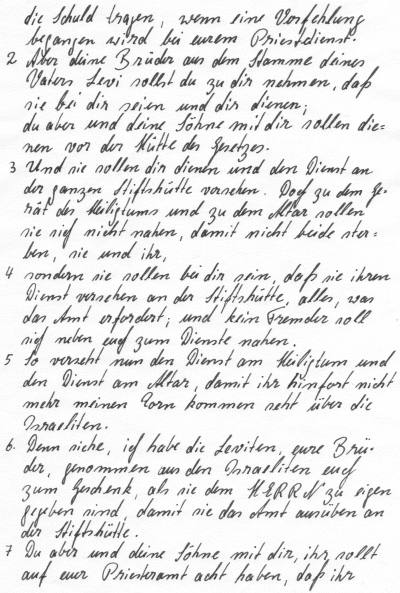 die Schuld tragen, wenn eine Verfehlung
begangen wird bei eurem Priesterdienst.
2 Aber deine Brüder aus dem Stamme deines
Vaters Levi sollst du zu dir nehmen, daß
sie bei dir seien und dir dienen;
du aber und deine Söhne mit dir sollen die=
nen vor der Hütte des Gesetzes.
3 Und sie sollen dir dienen und den Dienst an
der ganzen Stiftshütte versehen. Doch zu dem Ge-
rät des Heiligtums und zu dem Altar sollen
sie sich nicht nahen, damit nicht beide ster=
ben, sie und ihr,
4 sondern sie sollen bei dir sein, daß sie ihren
Dienst versehen an der Stiftshütte, alles, was
das Amt erfordert; und kein Fremder soll
sich neben euch zum Dienste nahen.
5 So verseht nun den Dienst am Heiligtum und
den Dienst am Altar, damit ihr hinfort nicht
mehr meinen Zorn kommen seht über die
Israeliten.
6. Denn siehe, ich habe die Leviten, eure Brü-
der, genommen aus den Israeliten euch
zum Geschenk, als sie dem HERRN zu eigen
gegeben sind, damit sie das Amt ausüben an
der Stiftshütte.
7 Du aber und deine Söhne mit dir, ihr sollt
auf euer Priesteramt acht haben, daß ihr